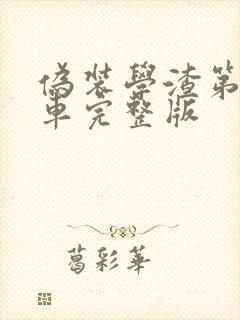 偽裝學渣第
車完整版
葛彩華